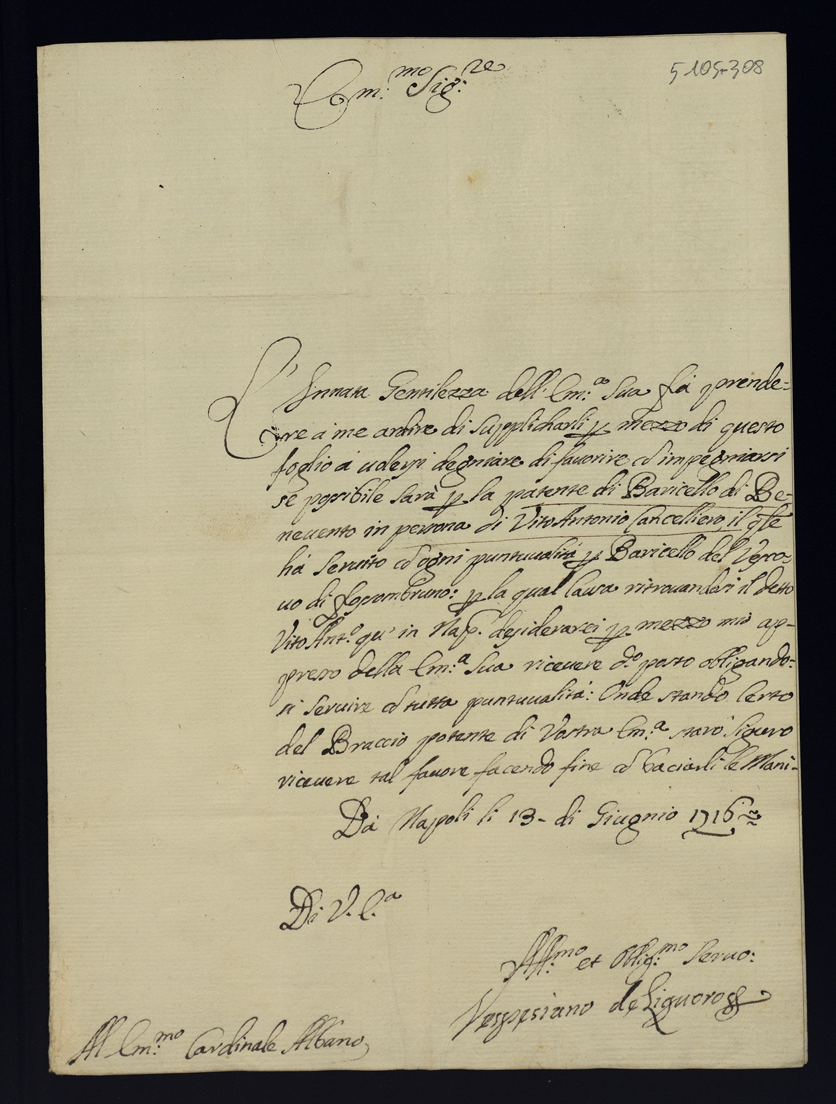 5-105-308
Em:mo Sig:re
L'Innata Gentilezza dell'Em:a Sua fà prende=
re a me ardire di supplicharli p mezzo di questo
foglio à volersi degniare di favorire ed impegniarsi
se possibile sarà p la patente di Baricello di Be=
nevento in persona di Vito Antonio Cancelliero, il qle
hà servito cō ogni puntuualità p Baricello del Vesco=
vo di : p la qual causa ritrovandosi il detto
Vito Ant:o qui in Nap. desiderarei p mezzo mio ap=
presso della Em:a Sua ricevere d:o posto obligando=
si servire cō tutta puntuualità: Onde stando Certo
del Braccio potente di Vostra Em:a starò Siguro
ricevere tal favore facendo fine cō baciarli le Mani=
Da Napoli li 13- di Giugnio 1716
Di V. E.a
Aff:mo et Oblig:mo Servo:
Vespesiano de Liguoro
All Em:mo Cardinale Albano